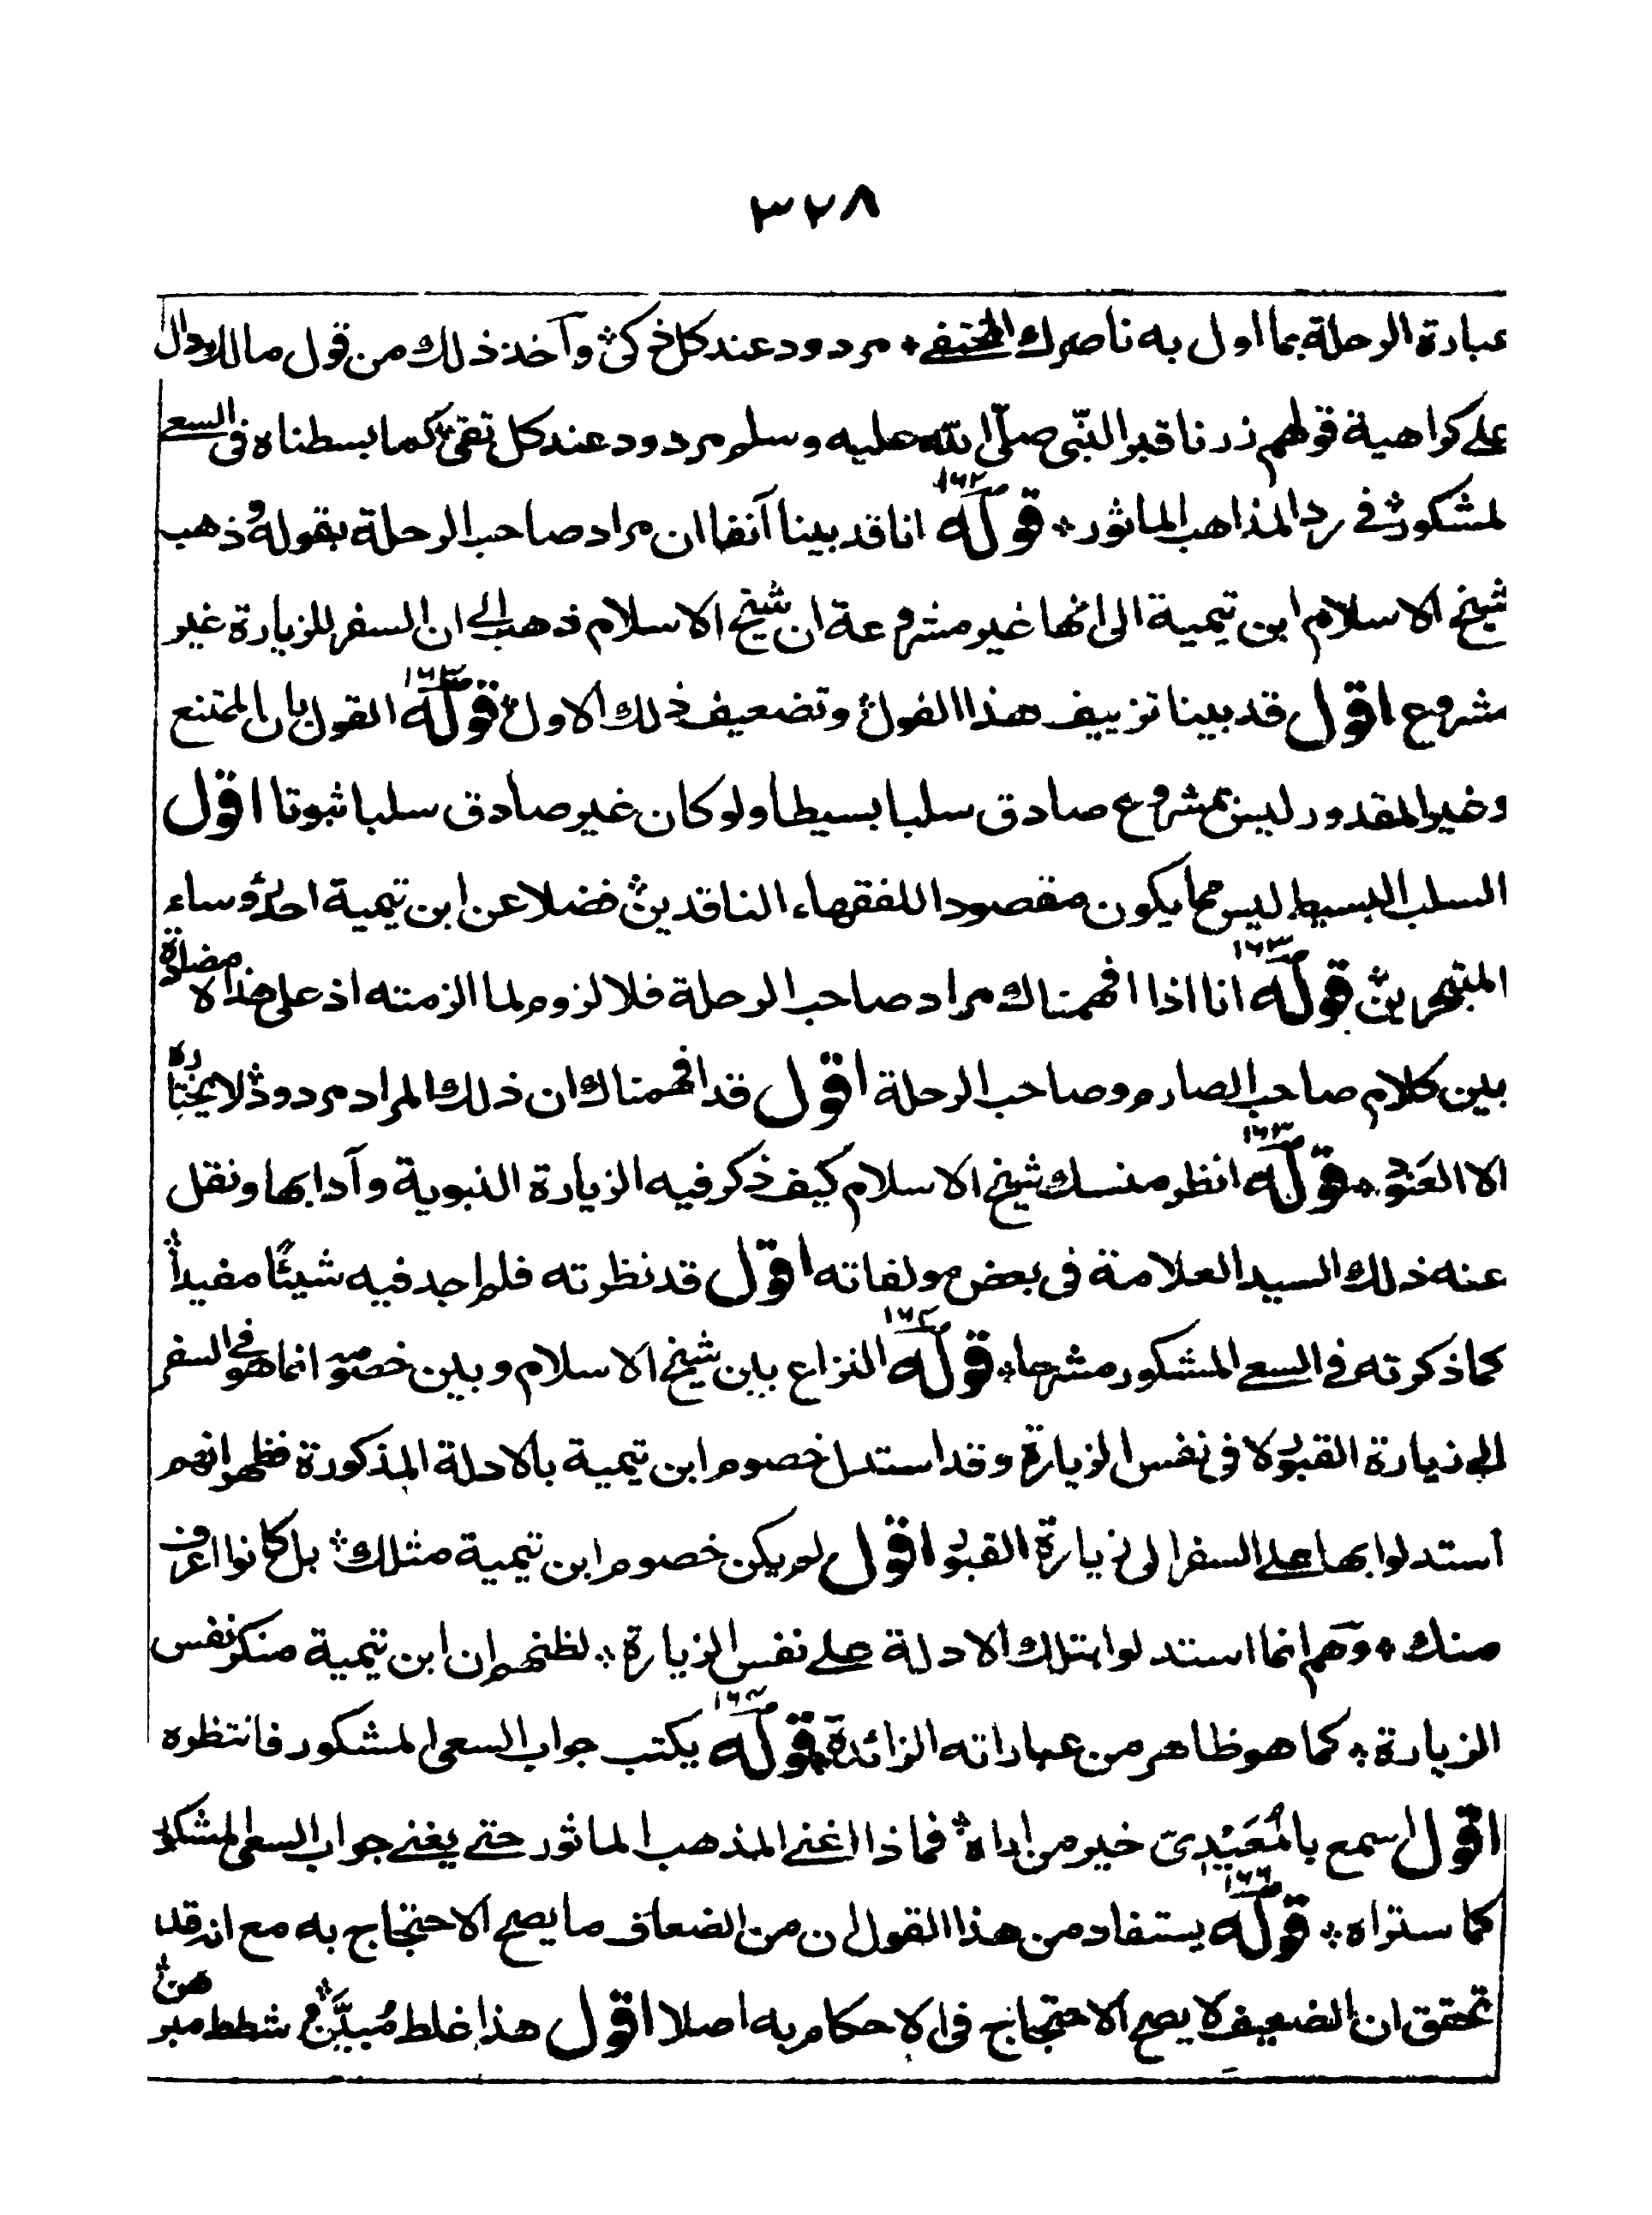 ٣٢٨
عبارة الرحلة بما اول به ناصرك المختفے ٭ مردود عند كل ذكی ٭ وآخذ ذلك من قول مالك الدال
علے كراهية قولهم زرنا قبر النّبی صلّى الله عليه وسلم مردود عند كل تقی ٭ كما بسطناه فی السعے
المشكور ٭ فے رد المذاهب الماثور ٭ قوله ص١٦٢ انا قد بينا آنفا ان مراد صاحب الرحلة بقوله وذهب
شيخ الاسلام ابن تيمية الى انها غير مشروعة ان شيخ الاسلام ذهب الے ان السفر للزيارة غير
مشروع اقول قد بينا تزييف هذا القول ٭ وتضعيف ذلك الاول ٭ قوله ص١٦٣ القول بان الممتنع
وغير المقدور ليس بمشروع صادق سلبا بسيطا ولو كان غير صادق سلبا ثبوتا اقول
السلب البسيط ليس مما يكون مقصودا للفقهاء الناقدين ٭ فضلا عن ابن تيمية احد رؤساء
المتبحرين ٭ قوله ص١٦٣ انا اذا افهمناك مراد صاحب الرحلة فلا لزوم لما الزمته اذ على هذا لا مضادة
بين كلام صاحب الصارم وصاحب الرحلة اقول قد افهمناك ان ذلك المراد مردود ٭ لا يختاره
الا العَنود ٭ قوله ص١٦٣ انظر منسك شيخ الاسلام كيف ذكر فيه الزيارة النبوية وآدابها ونقل
عنه ذلك السيد العلامة فی بعض مولفاته اقول قد نظرته فلم اجد فيه شيئًا مفيدا ٭
كما ذكرته فے السعے المشكور مشرحا ٭ قوله ص١٦٤ النزاع بين شيخ الاسلام وبين خصومه انما هو فے السفر
الى زيارة القبور لا فی نفس الزيارة وقد استدل خصوم ابن تيمية بالادلة المذكورة فظهر انهم
استدلوا بها علے السفر الى زيارة القبور اقول لم يكن خصوم ابن تيمية مثلك ٭ بل كانوا اعرف
منك ٭ وهم انما استدلوا بتلك الادلة علے نفس الزيارة ٭ لظنهم ان ابن تيمية منكر نفس
الزيارة ٭ كما هو ظاهر من عباراته الزائدة ٭ قوله ص١٦٤ يكتب جواب السعی المشكور فانتظره
اقول اسمع بالمُعَيْدِی خير من ان اراه ٭ فما ذا اغنے المذهب الماثور حتے يغنے جواب السعی المشكور
كما ستراه ٭ قوله ص١٦٦ يستفاد من هذا القول ان من الضعاف ما يصح الاحتجاج به مع انه قد
تحقق ان الضعيف لا يصح الاحتجاج فی الاحكام به اصلا اقول هذا غلط مُبيَّن ٭ شطط مبرهن ٭